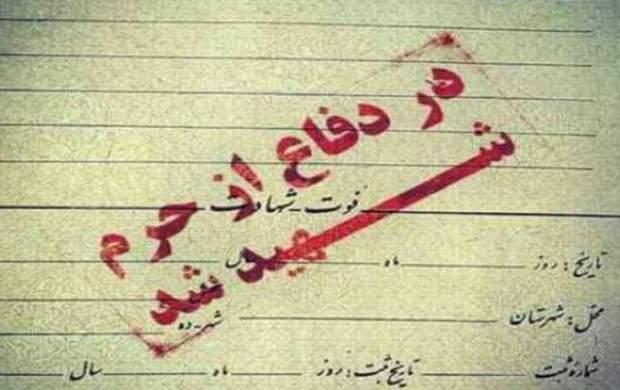 در دفاع از حرم
شهید شد
فوت شهادت
تاریخ: روز ماه سال
محل: شهرستان شهر-ده
شمارهٔ ثبت تاریخ ثبت: روز ماه سال